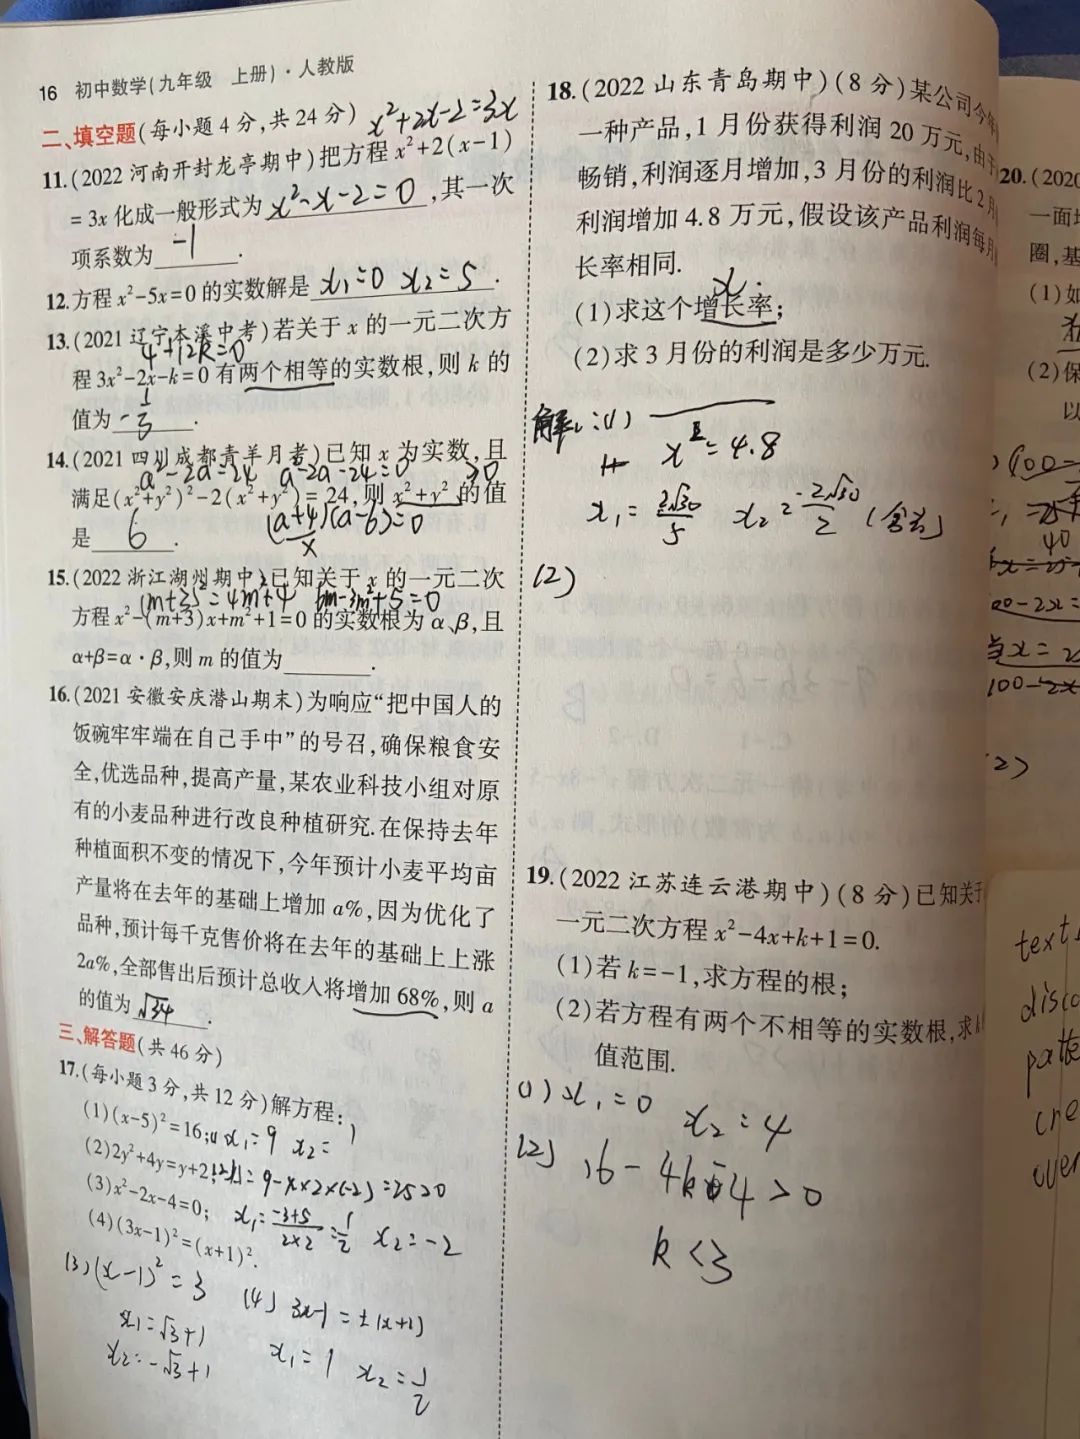 16 初中数学(九年级 上册)·人教版
二、填空题(每小题4分,共24分)
x²+2x-2=3x
11.(2022河南开封龙亭期中)把方程x²+2(x-1)
=3x化成一般形式为x²-x-2=0,其一次
项系数为-1.
12.方程x²-5x=0的实数解是x₁=0 x₂=5.
13.(2021辽宁本溪中考)若关于x的一元二次方
4+12k=0
程3x²-2x-k=0有两个相等的实数根,则k的
值为-1/3.
14.(2021四川成都青羊月考)已知x为实数,且
a²-2a=24 a²-2a-24=0 ≥0
满足(x²+y²)²-2(x²+y²)=24,则x²+y²的值
是6.
(a+4)(a-6)=0
x
15.(2022浙江湖州期中)已知关于x的一元二次
(m+3)²=4m²+4 6m-3m²+5=0
方程x²-(m+3)x+m²+1=0的实数根为α、β,且
α+β=α·β,则m的值为.
16.(2021安徽安庆潜山期末)为响应“把中国人的
饭碗牢牢端在自己手中”的号召,确保粮食安
全,优选品种,提高产量,某农业科技小组对原
有的小麦品种进行改良种植研究.在保持去年
种植面积不变的情况下,今年预计小麦平均亩
产量将在去年的基础上增加a%,因为优化了
品种,预计每千克售价将在去年的基础上上涨
2a%,全部售出后预计总收入将增加68%,则a
的值为√34.
三、解答题(共46分)
17.(每小题3分,共12分)解方程:
(1)(x-5)²=16; (1) x₁=9 x₂=1
(2)2y²+4y=y+2; (2) =9-4×2×(-2)=25>0
(3)x²-2x-4=0; x₁=(-3+5)/(2×2)=1/2 x₂=-2
(4)(3x-1)²=(x+1)².
(3)(x-1)²=3
x₁=√3+1
x₂=-√3+1
(4) 3x-1=±(x+1)
x₁=1 x₂=1/2
18.(2022山东青岛期中)(8分)某公司今年
一种产品,1月份获得利润20万元,由于
畅销,利润逐月增加,3月份的利润比2月
利润增加4.8万元,假设该产品利润每月
长率相同.
x
(1)求这个增长率;
(2)求3月份的利润是多少万元.
解:(1)
x²=4.8
x₁=2√30/5 x₂=-2√30/2 (舍去)
(2)
19.(2022江苏连云港期中)(8分)已知关于
一元二次方程x²-4x+k+1=0.
(1)若k=-1,求方程的根;
(2)若方程有两个不相等的实数根,求k
值范围.
(1) x₁=0 x₂=4
(2) 16-4k-4>0
k<3
20.(2020
一面墙
圈,基
(1)如
(2)保
以
100-
40
100-2x
当x=2
100-2x
(2)
text
disco
patte
cre
over